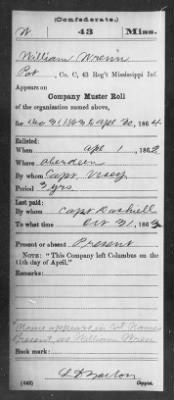 (Confederate.)
W. 43 Miss.
William Wrenn
Pvt., Co. C, 43 Reg't Mississippi Inf.
Appears on
Company Muster Roll
of the organization named above,
for Dec 31, 1863 to Apl 30, 1864
Enlisted:
When Apl 1, 1862
Where Aberdeen
By whom Capt
Period 3 yrs
Last paid:
By whom Capt
To what time Oct 31, 1863
Present or absent Present
NOTE: "This Company left Columbus on the
11th day of April."
Remarks:
Name appears in Col. Names
Present, as William Wren
Book mark:
(642) Copyist.